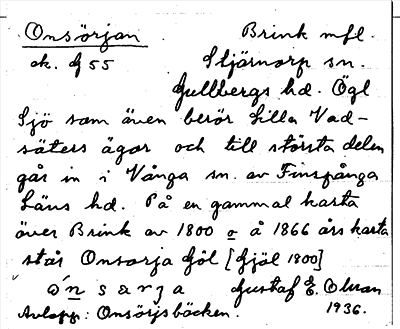 Onsörjan. Brink mfl.
ek. G 55 Stjärnorp sn.
Gullbergs hd. Ögl
Sjö som även berör Lilla Vad-
säters ägor och till största delen
går in i Vånga sn. av Finspånga
Läns hd. På en gammal karta
över Brink av 1800 o å 1866 års karta
står Onsorja Göl [Gjöl 1800]
Gustaf E. Olsson
Avlopp: Onsörjsbäcken. 1936.